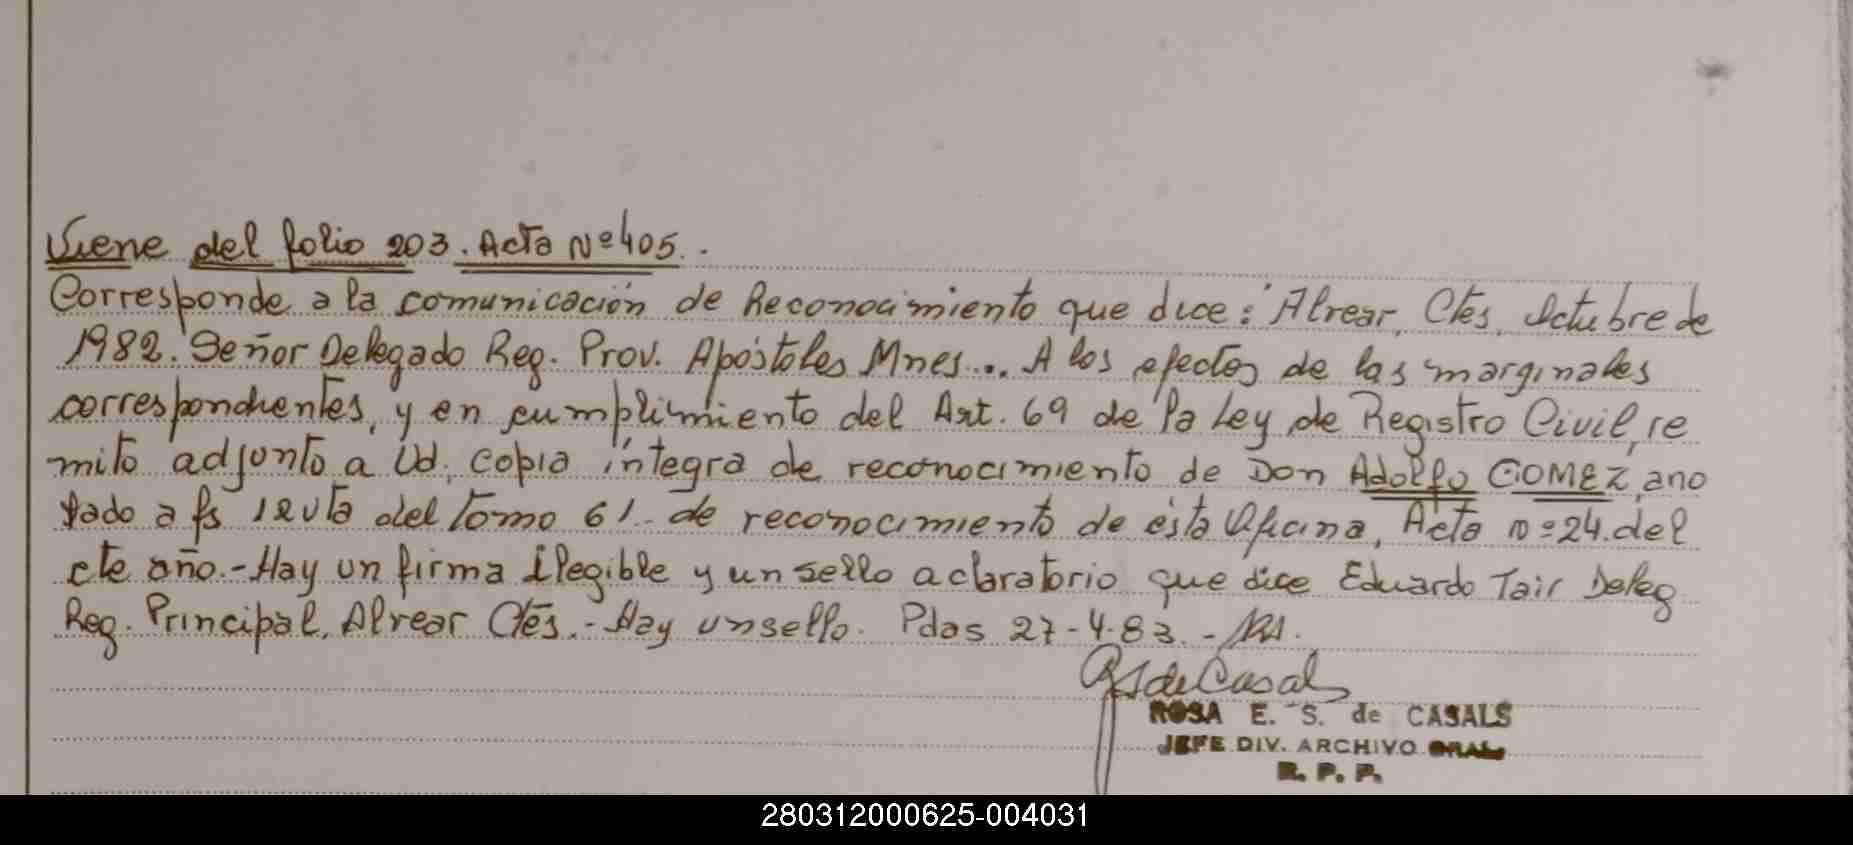 Viene del folio 203. Acta Nº 405.-
Corresponde a la comunicación de Reconocimiento que dice: "Alvear, Ctes, Octubre de
1982. Señor Delegado Reg. Prov. Apóstoles Mnes... A los efectos de las marginales
correspondientes, y en cumplimiento del Art. 69 de la Ley de Registro Civil, re
mito adjunto a Ud. copia íntegra de reconocimiento de Don Adolfo GOMEZ, ano
tado a fs 12 vta del Tomo 61.- de reconocimiento de ésta Oficina, Acta nº 24. del
cte año.- Hay un firma Ilegible y un sello aclaratorio que dice Eduardo Tair Deleg
Reg. Principal, Alvear Ctes.- Hay un sello. Pdas 27-4-83.-
RS de Casals
ROSA E. S. de CASALS
JEFE DIV. ARCHIVO GRAL
R. P. P.
280312000625-004031